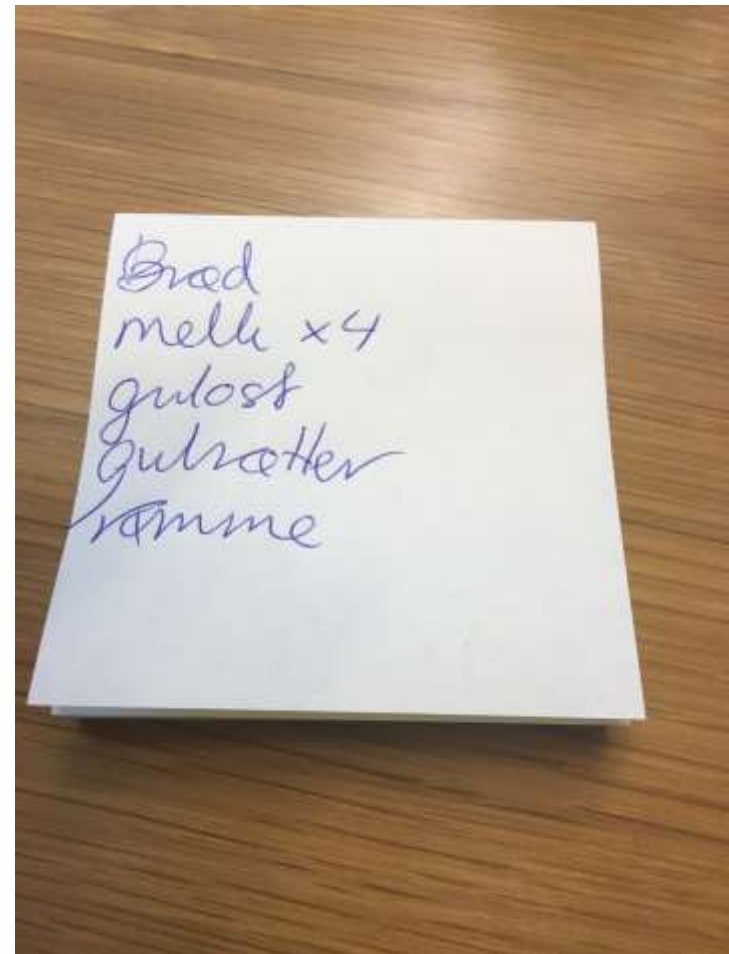 Brød
melk x4
gulost
gulrøtter
rømme